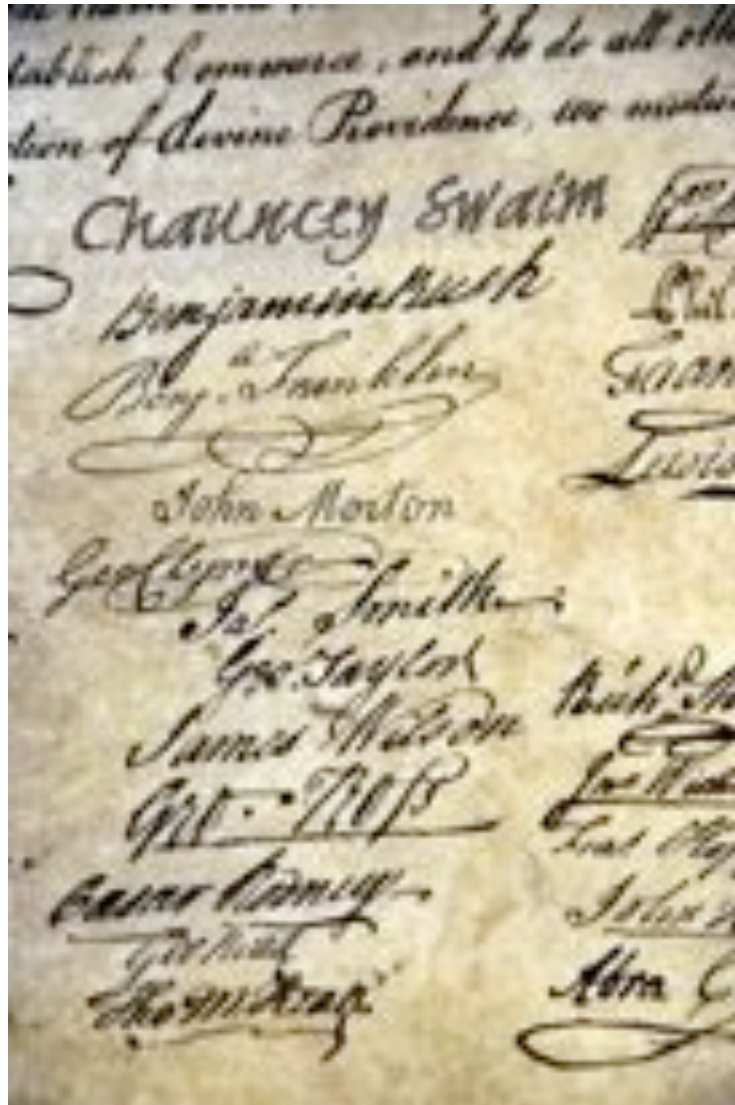 tablish Commerce, and to do all oth
tion of divine Providence, we mutu
Chauncey Swaim
Benjamin Rush
Benj.ᵃ Franklin
John Morton
Geo Clymer
Jaˢ. Smith
Geo. Taylor
James Wilson
Geo. Ross
Caesar Rodney
Geo Read
Tho M:Kean
Phil.
Fran
Lewis
Richᵈ. 
John
Abra C